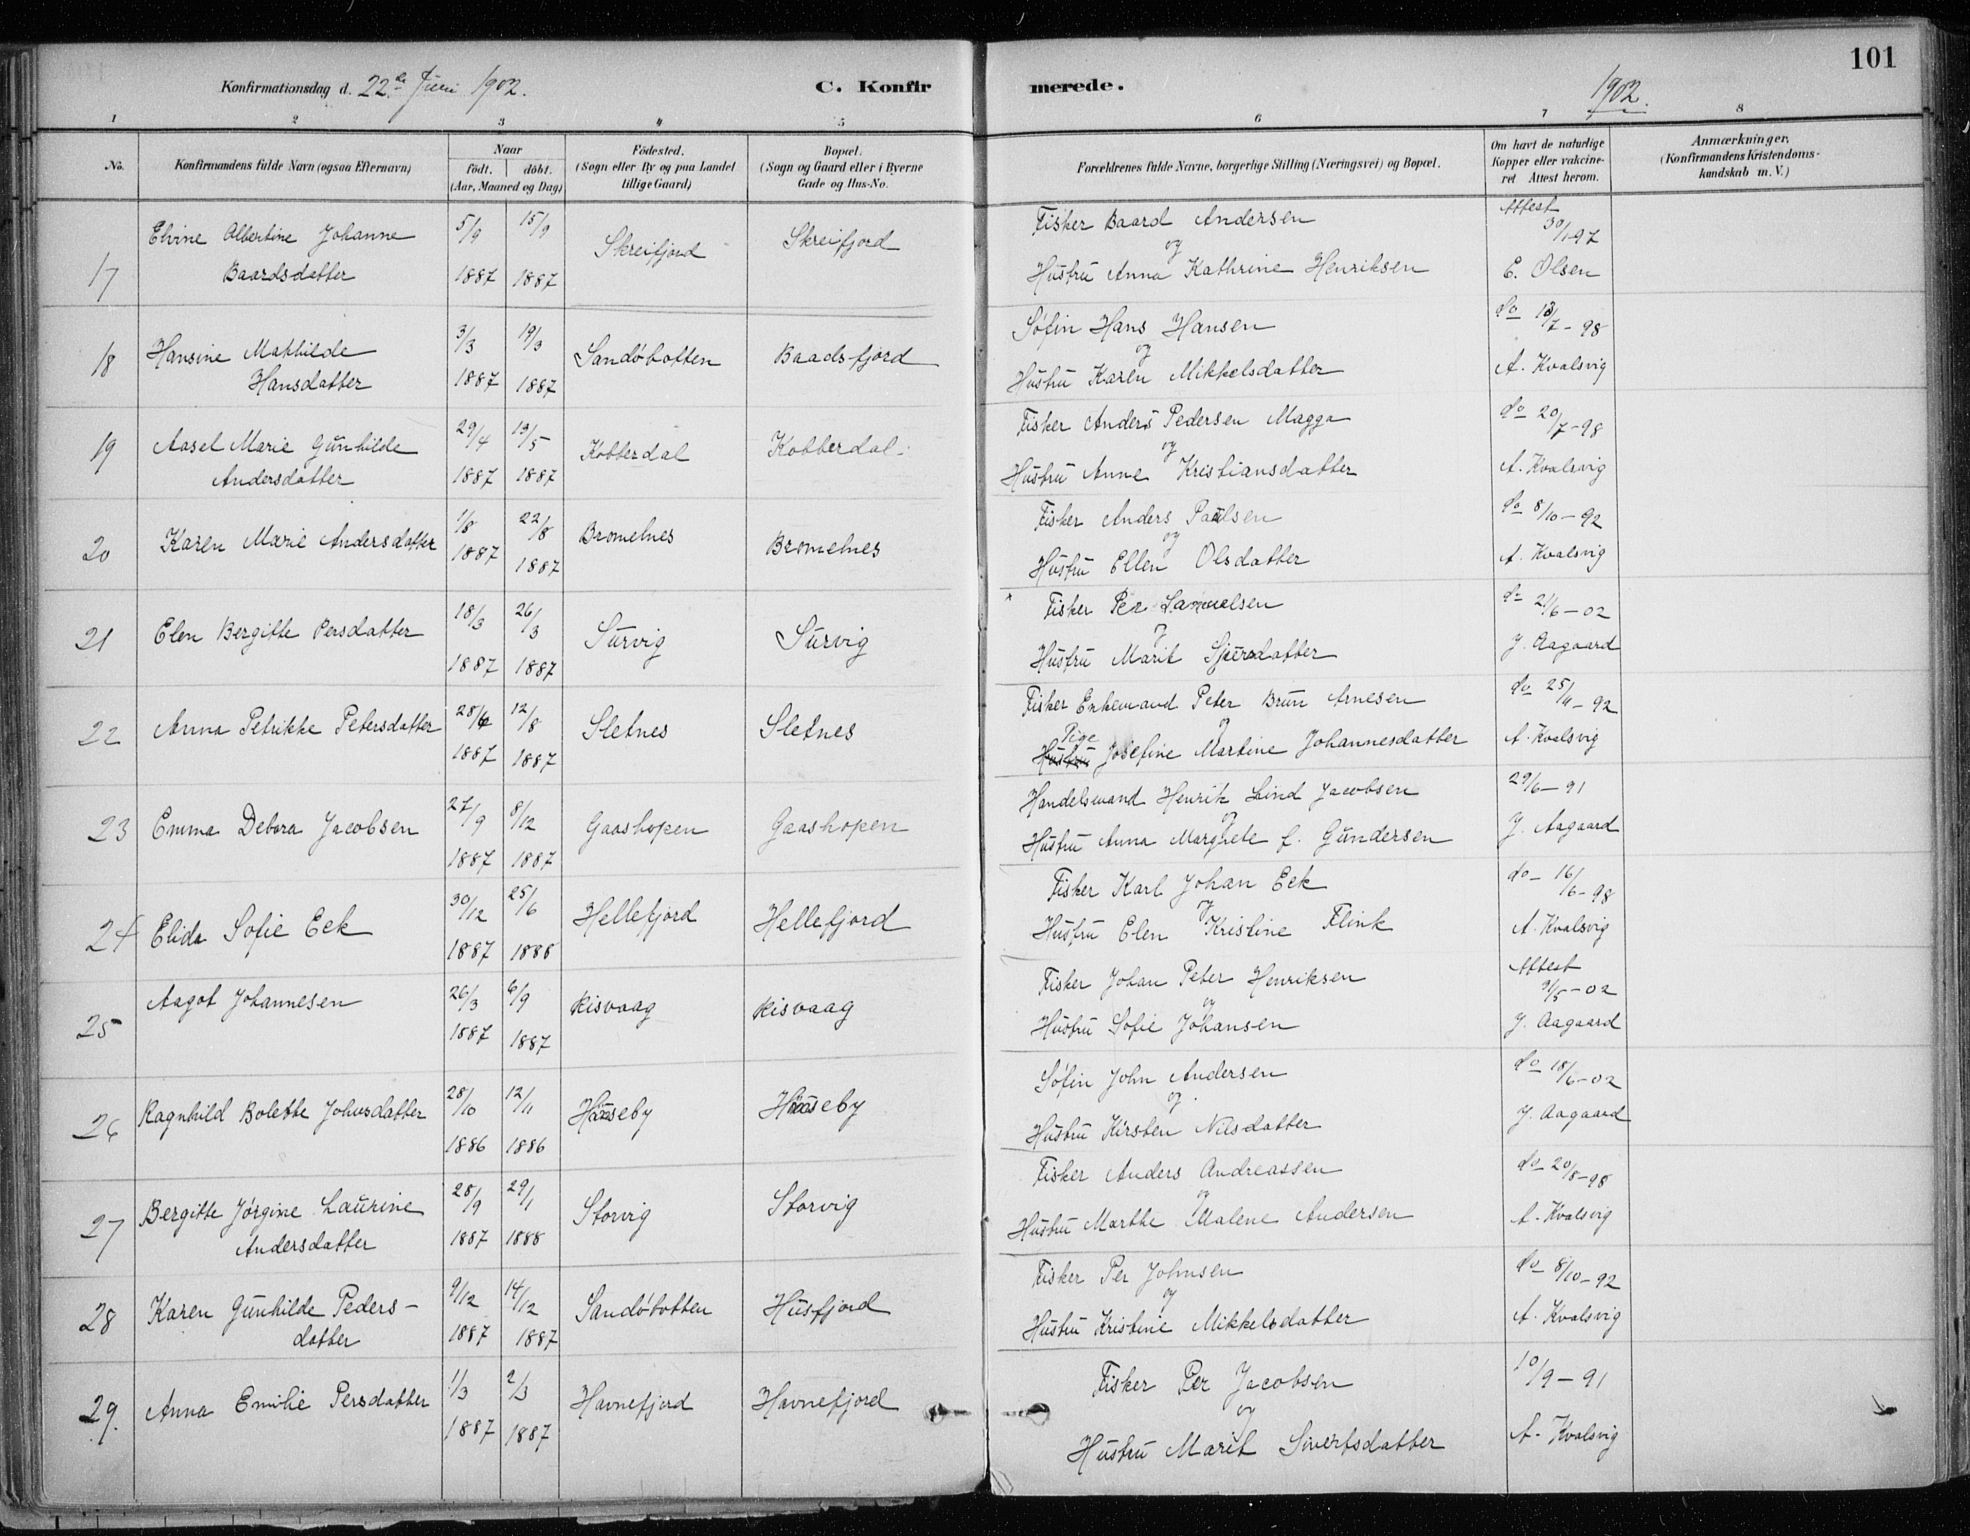 101
Konfirmationsdag d. 22de Juni 1902.
C. Konfirmerede.
1902.
1 2 3 4 5 6 7 8
No.
Konfirmandens fulde Navn (ogsaa Efternavn)
Naar
födt. döbt.
(Aar, Maaned og Dag)
Födested.
(Sogn eller By og paa Landet
tillige Gaard)
Bopæl.
(Sogn og Gaard eller i Byerne
Gade og Hus-No.
Forældrenes fulde Navne, borgerlige Stilling (Næringsvei) og Bopæl.
Om havt de naturlige
Kopper eller vakcine-
ret Attest herom.
Anmærkninger.
(Konfirmandens Kristendoms-
kundskab m. V.)
17 Elvine Albertine Johanne
Baardsdatter
5/9 1887 15/9 1887 Skreifjord Skreifjord
Fisker Baard Andersen
og
Hustru Anna Kathrine Henriksen
Attest 30/1-97
E. Olsen
18 Hansine Mathilde
Hansdatter
3/3 1887 19/3 1887 Sandøbotten Baadsfjord
Søfin Hans Hansen
og
Hustru Karen Mikkelsdatter
do 13/7-98
A. Kvalsvig
19 Aasel Marie Gunhilde
Andersdatter
29/4 1887 19/5 1887 Kobberdal Kobberdal
Fisker Anders Pedersen Magga
og
Hustru Anne Kristiansdatter
do 20/7-98
A. Kvalsvig
20 Karen Marie Andersdatter
1/8 1887 22/8 1887 Bromelnes Bromelnes
Fisker Anders Paulsen
og
Hustru Ellen Olsdatter
do 8/10-92
A. Kvalsvig
21 Elen Bergitte Persdatter
18/3 1887 26/3 1887 Survig Survig
Fisker Per Samuelsen
og
Hustru Marit Sjursdatter
do 21/6-02
J. Aagaard
22 Anna Petrikke Petersdatter
28/6 1887 12/8 1887 Sletnes Sletnes
Fisker Enkemand Peter Brun Arnesen
og
Pige
Hustru Josefine Martine Johannesdatter
do 25/11-92
A. Kvalsvig
23 Emma Debora Jacobsen
27/9 1887 8/12 1887 Gaashopen Gaashopen
Handelsmand Henrik Lind Jacobsen
og
Hustru Anna Marghete f. Gundersen
29/6-91
J. Aagaard
24 Elida Sofie Eek
30/12 1887 25/6 1888 Hellefjord Hellefjord
Fisker Karl Johan Eek
og
Hustru Elen Kristine Flink
do- 16/6-98
A. Kvalsvig
25 Aagot Johannesen
26/3 1887 6/9 1887 Risvaag Risvaag
Fisker Johan Peter Henriksen
og
Hustru Sofie Johansen
Attest 31/5-02
J. Aagaard
26 Ragnhild Bolette Johnsdatter
28/10 1886 12/11 1886
Søfin John Andersen
og
Hustru Kirsten Nilsdatter
do 18/6-02
J. Aagaard
27 Bergitte Jørgine Laurine
Andersdatter
28/9 1887 29/1 1888 Storvig Storvig
Fisker Anders Andreassen
og
Hustru Marthe Malene Andersen
do 20/8-98
A. Kvalsvig
28 Karen Gunhilde Peders-
datter
9/12 1887 14/12 1887 Sandøbotten Husfjord
Fisker Per Johnsen
og
Hustru Kristine Mikkelsdatter
do 8/10-92
A. Kvalsvig
29. Anna Emilie Persdatter
1/3 1887 2/3 1887 Havnefjord Havnefjord
Fisker Per Jacobsen
og
Hustru Marit Sivertsdatter
10/9-91
A. Kvalsvig